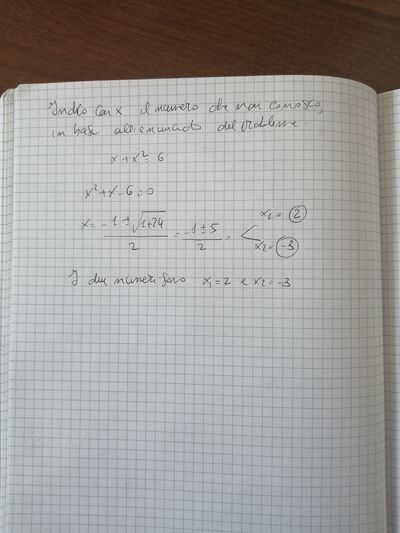 Indico con x il numero che non conosco,
in base all'enunciato del problema
x+x²=6
x²+x-6=0
x= -1±√1+24 / 2 = -1±5 / 2 = < x1=2 x2=-3
I due numeri sono x1=2 e x2=-3